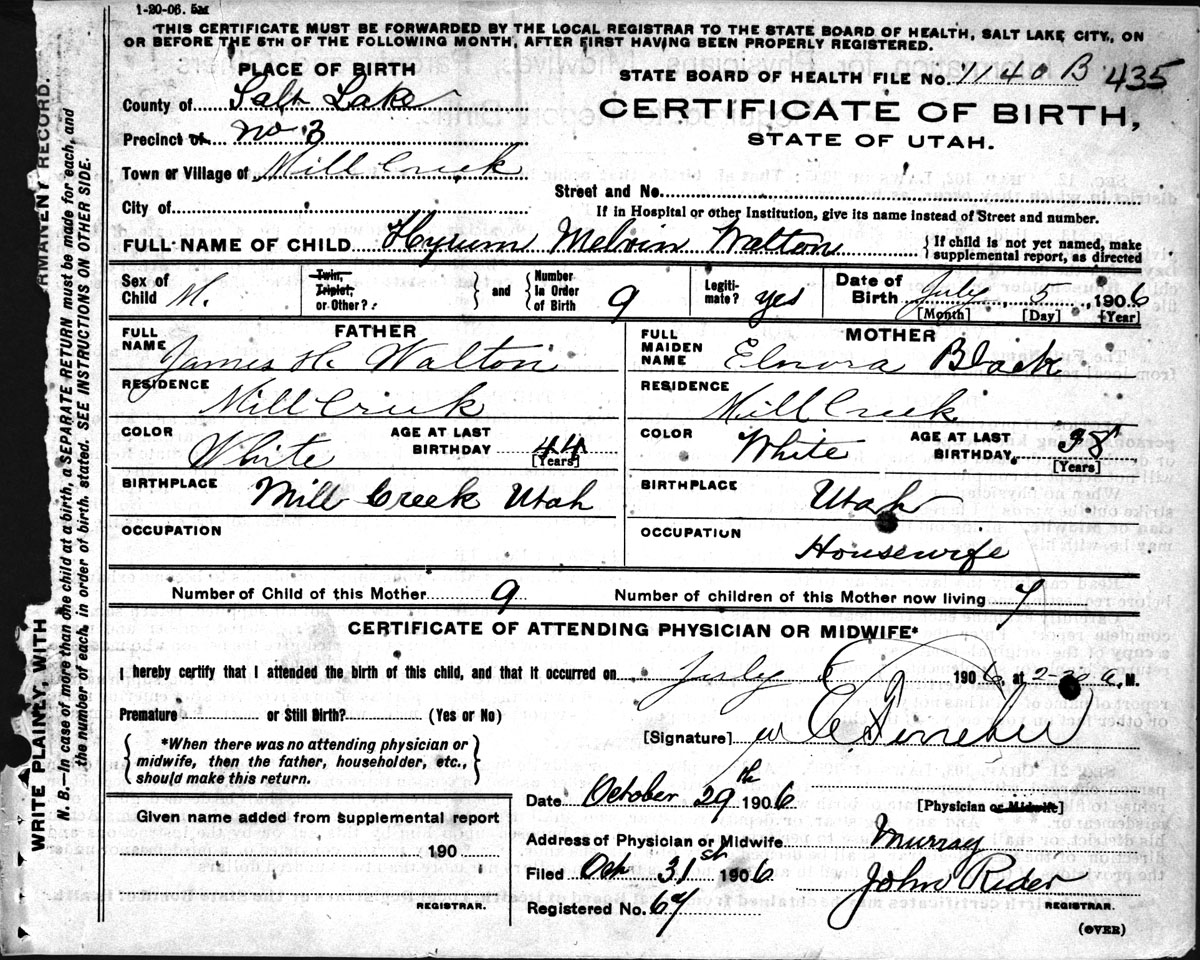 1-20-06. 5M
THIS CERTIFICATE MUST BE FORWARDED BY THE LOCAL REGISTRAR TO THE STATE BOARD OF HEALTH, SALT LAKE CITY, ON
OR BEFORE THE 5TH OF THE FOLLOWING MONTH, AFTER FIRST HAVING BEEN PROPERLY REGISTERED.
PLACE OF BIRTH
STATE BOARD OF HEALTH FILE NO. 1140 B 435
County of Salt Lake
CERTIFICATE OF BIRTH,
Precinct of No 3
STATE OF UTAH.
Town or Village of Mill Creek
Street and No.
City of
If in Hospital or other Institution, give its name instead of Street and number.
FULL NAME OF CHILD Hyrum Melvin Walton
If child is not yet named, make
supplemental report, as directed
Sex of Child M.
Twin, Triplet, or Other?
and
Number In Order of Birth 9
Legitimate? yes
Date of Birth July 5, 1906
[Month] [Day] [Year]
FATHER
FULL NAME James H. Walton
RESIDENCE Mill Creek
COLOR White
AGE AT LAST BIRTHDAY 44
[Years]
BIRTHPLACE Mill Creek Utah
OCCUPATION
MOTHER
FULL MAIDEN NAME Elnora Black
RESIDENCE Mill Creek
COLOR White
AGE AT LAST BIRTHDAY, 38
[Years]
BIRTHPLACE Utah
OCCUPATION Housewife
Number of Child of this Mother 9
Number of children of this Mother now living 7
CERTIFICATE OF ATTENDING PHYSICIAN OR MIDWIFE*
I hereby certify that I attended the birth of this child, and that it occurred on July 5 1906, at 2-30 a. M.
Premature or Still Birth? (Yes or No)
[Signature]
*When there was no attending physician or
midwife, then the father, householder, etc.,
should make this return.
Date October 29th 1906
[Physician or Midwife]
Given name added from supplemental report
190
REGISTRAR.
Address of Physician or Midwife Murray
Filed Oct 31st 1906
John Rider
REGISTRAR.
Registered No. 64
(OVER)
WRITE PLAINLY, WITH
RMANENT RECORD.
N. B.—In case of more than one child at a birth, a SEPARATE RETURN must be made for each, and
the number of each, in order of birth, stated. SEE INSTRUCTIONS ON OTHER SIDE.